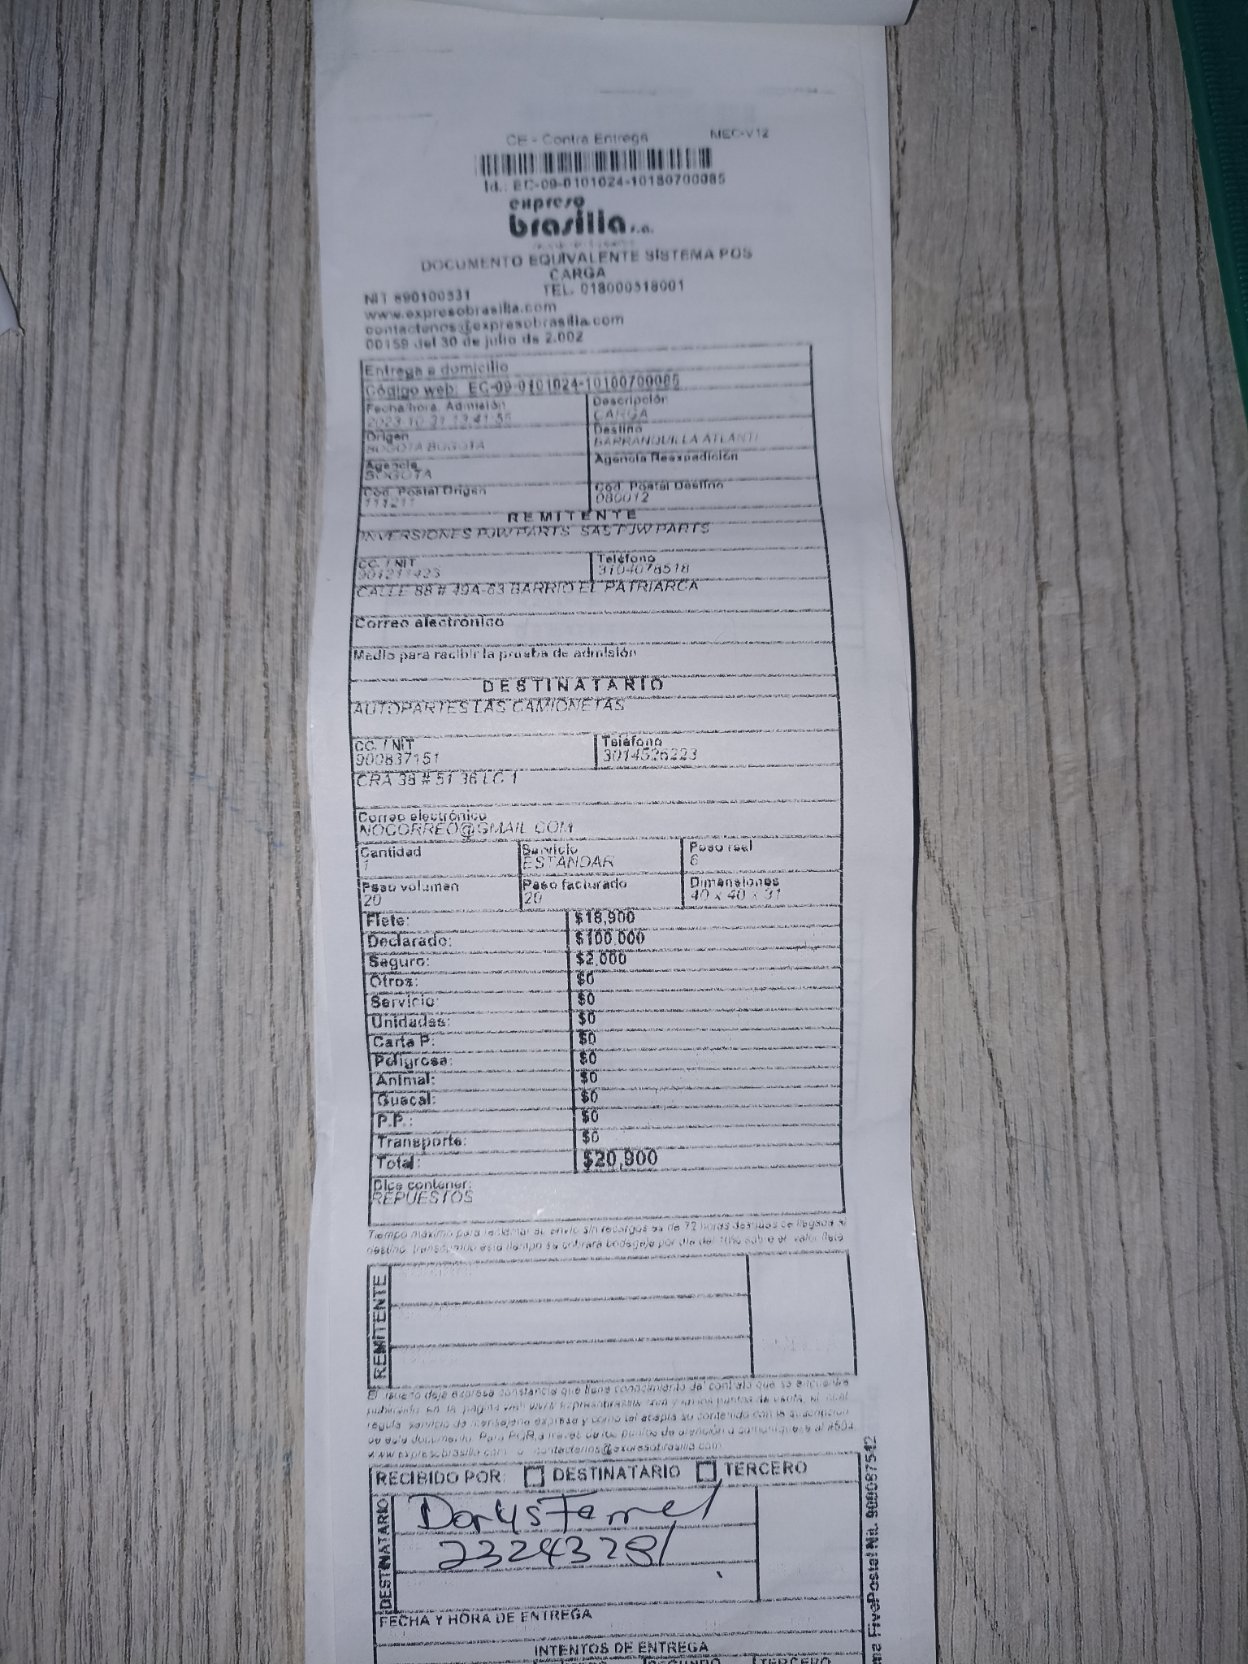 CE - Contra Entrega MEC-V12
Id.: EC-09-0101024-10180700085
expreso
brasilia s.a.
DOCUMENTO EQUIVALENTE SISTEMA POS
CARGA
NIT 890100531 TEL. 018000518001
www.expresobrasilia.com
contactenos@expresobrasilia.com
00159 del 30 de julio de 2.002
Entrega a domicilio
Código web: EC-09-0101024-10180700085
Fecha/hora. Admisión Descripción
2023-10-31 13:41:55 CARGA
Origen Destino
BOGOTA BOGOTA BARRANQUILLA ATLANTI
Agencia Agencia Reexpedición
BOGOTA
Cod. Postal Origen Cod. Postal Destino
111211 080012
REMITENTE
INVERSIONES PJW PARTS SAS PJW PARTS
CC. / NIT Teléfono
901211423 3104078518
CALLE 88 # 49A-63 BARRIO EL PATRIARCA
Correo electrónico
Medio para recibir la prueba de admisión
DESTINATARIO
AUTOPARTES LAS CAMIONETAS
CC. / NIT Teléfono
900837151 3014526223
CRA 38 # 51 36 LC 1
Correo electrónico
NOCORREO@GMAIL.COM
Cantidad Servicio Peso real
1 ESTANDAR 6
Peso volumen Peso facturado Dimensiones
20 20 40 x 40 x 31
Flete: $18,900
Declarado: $100,000
Seguro: $2,000
Otros: $0
Servicio: $0
Unidades: $0
Carta P: $0
Peligrosa: $0
Animal: $0
Guacal: $0
P.P.: $0
Transporte: $0
Total: $20,900
Dice contener:
REPUESTOS
Tiempo máximo para reclamar su envío sin recargos es de 72 horas después de llegada al
destino, transcurrido este tiempo se cobrará bodegaje por día del sobre el valor flete
REMITENTE
El usuario deja expresa constancia que tiene conocimiento del contrato que se encuentra
publicado en la página web www.expresobrasilia.com y en los puntos de venta, el cual
regula servicio de mensajería expresa y como tal acepta su contenido con la suscripción
de este documento. Para PQR a través de los puntos de atención o comuníquese al #502
www.expresobrasilia.com o contactenos@expresobrasilia.com
RECIBIDO POR: DESTINATARIO TERCERO
DESTINATARIO
Dorys Famel
23243281
FECHA Y HORA DE ENTREGA
INTENTOS DE ENTREGA
SEGUNDO TERCERO
FivePostal Nit. 900087542